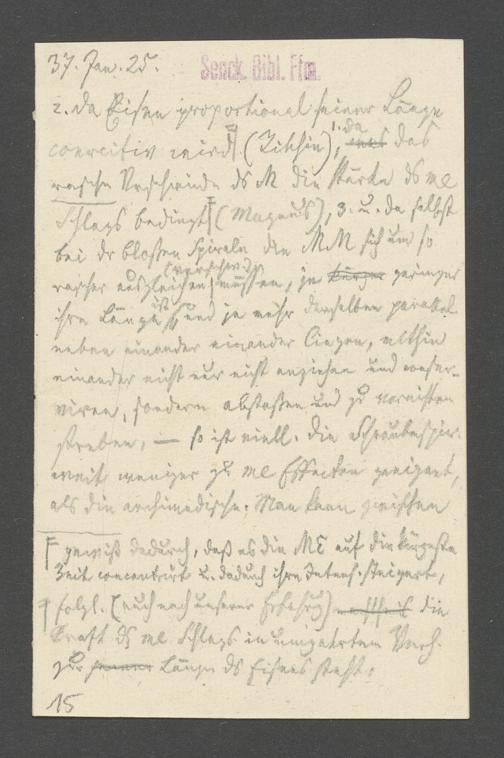 37. Jan. 25.
Senck. Bibl. Ffm.
2. da Eisen proportional seiner Länge
coërcitiv wird (Zikhin), 1. da das
rasche Verschwinden ds M die Stärke ds me
Schlags bedingt (Magnus), 3. u. da selbst
bei dr bloßen Spirale die MM sich um so
rascher ausgleichen (verschw.) müssen, je kürzer geringer
ihre Länge ist und je mehr derselben parallel
neben einander einander liegen, mithin
einander nicht nur nicht anziehen und conser-
viren, sondern abstoßen und zu vernichten
streben, — so ist viell. die Schraubenspir.
weit weniger zu me Effecten geeignet,
als die archimedische. Man kann zwischen
gewiß dadurch, daß es die ME auf die kürzeste
Zeit concentrirt u. dadurch ihre Intens. steigert,
folgl. (auch nach unserer Erfahrg) die
Kraft ds me Schlags in umgekehrtem Verh.
zur Länge ds Eisens steht.
15